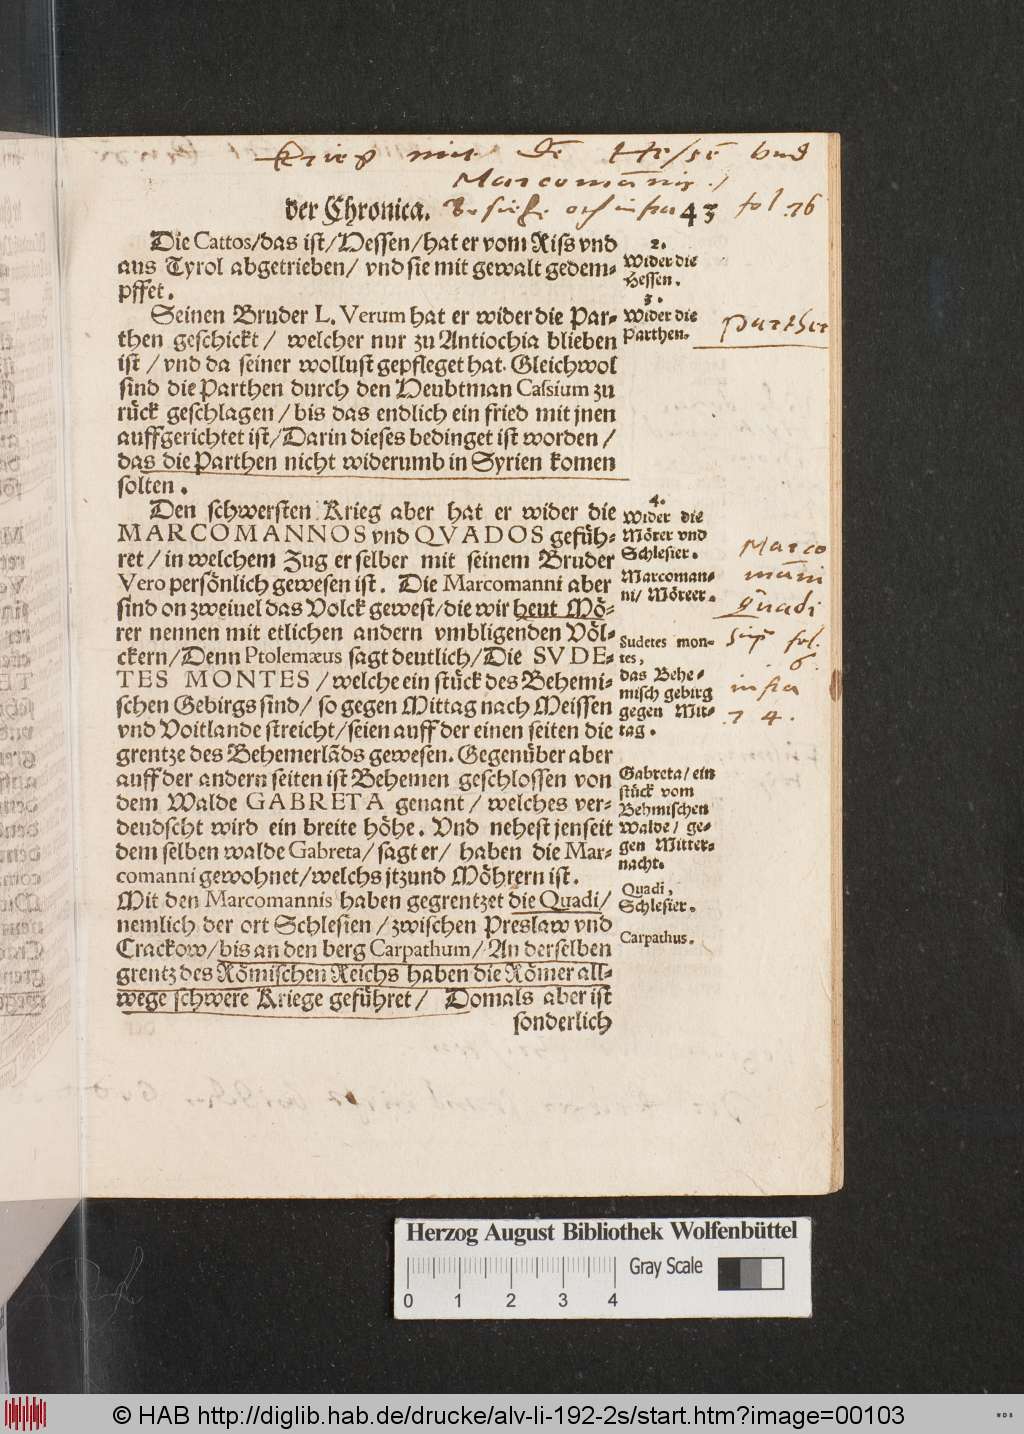 Krieg mit dē Hessē vnd
Marcomānis
der Chronica. Besiehe och infra 43 fol. 76
Die Cattos/das ist/Hessen/hat er vom Riss vnd
aus Tyrol abgetrieben/ vnd sie mit gewalt gedem⸗
pffet.
2.
Wider die
Hessen.
Seinen Bruder L. Verum hat er wider die Par⸗
then geschickt/ welcher nur zu Antiochia blieben
ist/ vnd da seiner wollust gepfleget hat. Gleichwol
sind die Parthen durch den Heubtman Cassium zu
rück geschlagen/ bis das endlich ein fried mit jnen
auffgerichtet ist/Darin dieses bedinget ist worden/
das die Parthen nicht widerumb in Syrien komen
solten.
3.
Wider die
Parthen.
Parther
Den schwersten Krieg aber hat er wider die
MARCOMANNOS vnd QVADOS gefüh⸗
ret/ in welchem Zug er selber mit seinem Bruder
Vero persönlich gewesen ist. Die Marcomanni aber
sind on zweiuel das Volck gewest/die wir heut Mö⸗
rer nennen mit etlichen andern vmbligenden Völ⸗
ckern/Denn Ptolemæus sagt deutlich/Die SVDE⸗
TES MONTES/welche ein stück des Behemi⸗
schen Gebirgs sind/ so gegen Mittag nach Meissen
vnd Voitlande streicht/seien auff der einen seiten die
grentze des Behemerlāds gewesen. Gegenüber aber
auff der andern seiten ist Behemen geschlossen von
dem Walde GABRETA genant/ welches ver⸗
deudscht wird ein breite höhe. Vnd nehest jenseit
dem selben walde Gabreta/ sagt er/ haben die Mar⸗
comanni gewohnet/welchs jtzund Möhrern ist.
Mit den Marcomannis haben gegrentzet die Quadi/
nemlich der ort Schlesien/ zwischen Preslaw vnd
Crackow/bis an den berg Carpathum/ An derselben
grentz des Römischen Reichs haben die Römer all⸗
wege schwere Kriege geführet/ Domals aber ist
sonderlich
4.
Wider die
Mörer vnd
Schlesier.
Marcoman⸗
ni/ Möreer.
Sudetes mon⸗
tes,
das Behe⸗
misch gebirg
gegen Mit⸗
tag.
Gabreta/ ein
stück vom
Behmischen
Walde/ ge⸗
gen Mitter⸗
nacht.
Quadi,
Schlesier.
Carpathus.
Marco
māni
Quadi
fol.
6.
infra
74.
Herzog August Bibliothek Wolfenbüttel
Gray Scale
0 1 2 3 4
© HAB http://diglib.hab.de/drucke/alv-li-192-2s/start.htm?image=00103